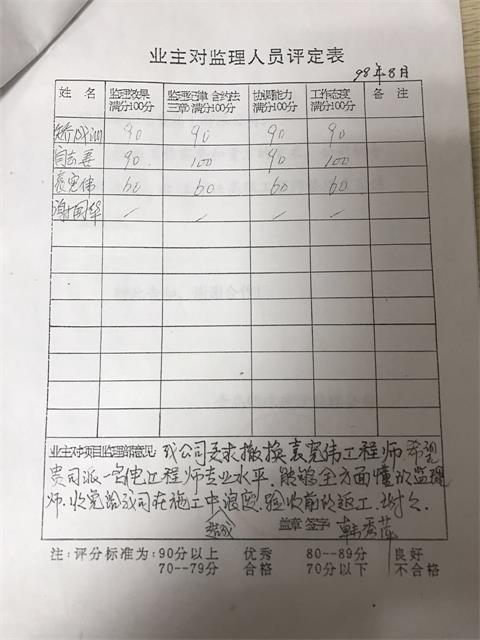 业主对监理人员评定表
98年8月
姓 名 监理效果 监理纪律 合约法 协调能力 工作态度 备 注
满分100分 三章 满分100分 满分100分 满分100分
90 90 90 90
90 100 90 100
袁宪伟 60 60 60 60
谢国华 / / / /
业主对项目监理部意见: 我公司要求撤换袁宪伟工程师 希望
贵司派一名电工程师专业水平,能够全方面懂的监理
师.以免给我司在施工中浪费,验收前的返工.谢谢.
造成
盖章 签字:
注:评分标准为:90分以上 优秀 80--89分 良好
70--79分 合格 70分以下 不合格